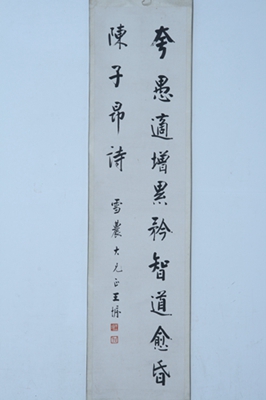 夸愚適增累矜智道愈昏
陳子昂詩
雪農大兄正王